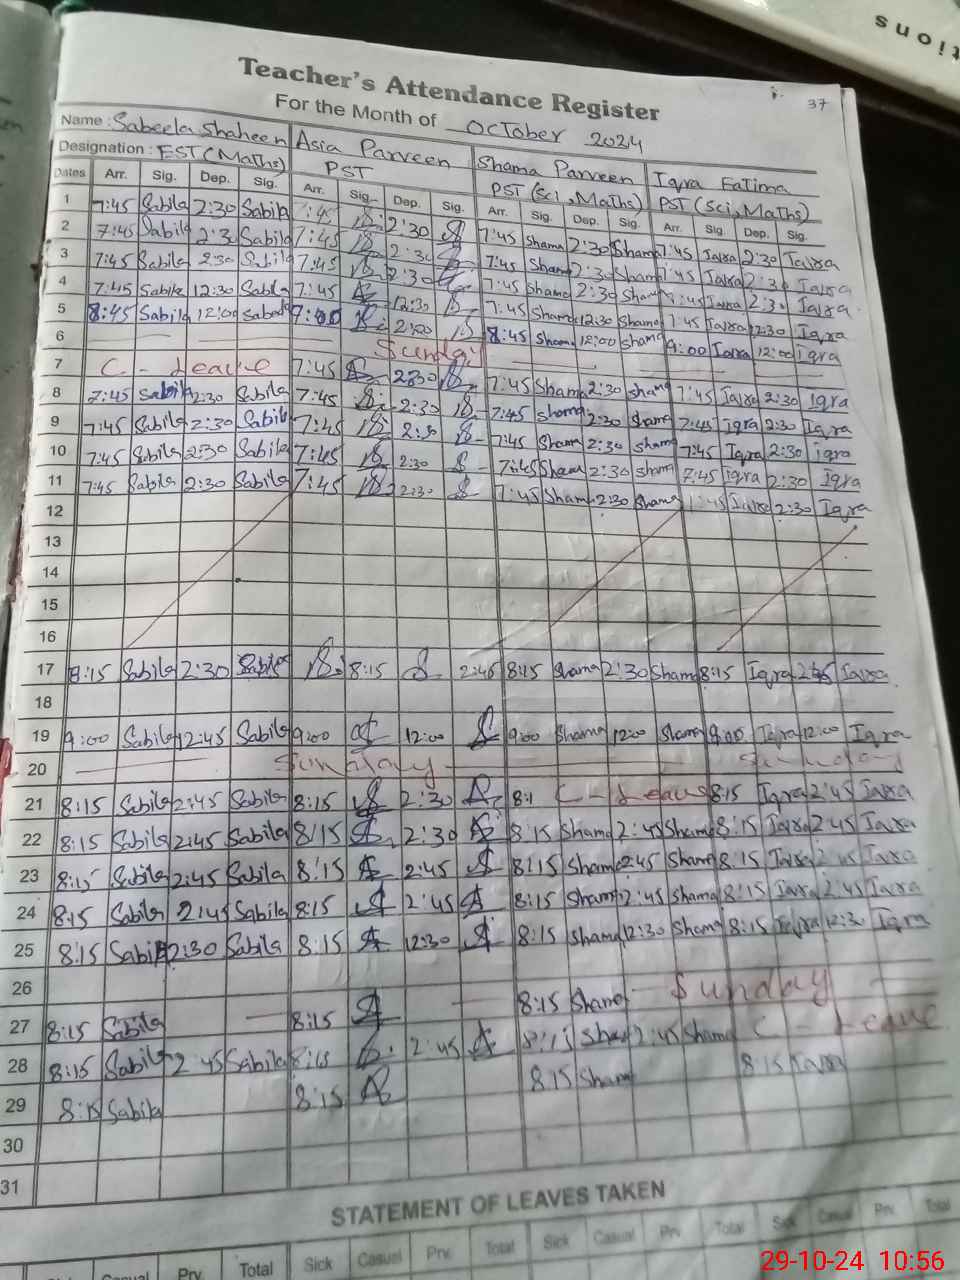 tions
37
Teacher's Attendance Register
For the Month of October 2024
Name : Sabeela Shaheen Asia Parveen Shama Parveen Iqra Fatima
Designation : EST (Maths) PST PST (Sci, Maths) PST (Sci, Maths)
Dates Arr. Sig. Dep. Sig. Arr. Sig. Dep. Sig. Arr. Sig. Dep. Sig. Arr. Sig. Dep. Sig.
1 7:45 Sabila 2:30 Sabila 7:45 2:30 7:45 Shama 2:30 Shama 7:45 Iqra 2:30 Iqra
2 7:45 Sabila 2:3 Sabila 7:45 2:30 7:45 Shama 2:30 Shama 7:45 Iqra 2:30 Iqra
3 7:45 Sabila 2:30 Sabila 7:45 2:30 7:45 Shama 2:30 Shama 7:45 Iqra 2:30 Iqra
4 7:45 Sabila 12:30 Sabila 7:45 12:30 7:45 Shama 12:30 Shama 7:45 Iqra 12:30 Iqra
5 8:45 Sabila 12:00 8:45 Shama 12:00 Shama 9:00 Iqra 12:00 Iqra
6 Sunday
7 C - Leave 7:45 2:30 7:45 Shama 2:30 Shama 7:45 Iqra 2:30 Iqra
8 7:45 Sabila 2:30 Sabila 7:45 2:30 7:45 Shama 2:30 Shama 7:45 Iqra 2:30 Iqra
9 7:45 Sabila 2:30 Sabila 7:45 2:30 7:45 Shama 2:30 Shama 7:45 Iqra 2:30 Iqra
10 7:45 Sabila 2:30 Sabila 7:45 2:30 7:45 Shama 2:30 Shama 7:45 Iqra 2:30 Iqra
11 7:45 Sabila 2:30 Sabila 7:45 2:30 7:45 Shama 2:30 Shama 7:45 Iqra 2:30 Iqra
12
13
14
15
16
17 8:15 Sabila 2:30 Sabila 8:15 2:45 8:15 Shama 2:30 Shama 8:15 Iqra Iqra
18
19 9:00 Sabila 12:45 Sabila 9:00 12:00 9:00 Shama 12:00 Shama 9:00 Iqra 12:00 Iqra
20 Sunday Sunday
21 8:15 Sabila 2:45 Sabila 8:15 2:30 8:1 C - Leave 8:15 Iqra 2:45 Iqra
22 8:15 Sabila 2:45 Sabila 8:15 2:30 8:15 Shama 2:45 Shama 8:15 Iqra 2:45 Iqra
23 8:15 Sabila 2:45 Sabila 8:15 2:45 8:15 Shama 2:45 Shama 8:15 Iqra 2:45 Iqra
24 8:15 Sabila 2:45 Sabila 8:15 2:45 8:15 Shama 2:45 Shama 8:15 Iqra 2:45 Iqra
25 8:15 Sabila 12:30 Sabila 8:15 12:30 8:15 Shama 12:30 Shama 8:15 Iqra 12:30 Iqra
26 Sunday
27 8:15 Sabila 8:15 8:15 Shama
28 8:15 Sabila 2:45 Sabila 8:15 2:45 8:15 Shama 2:45 Shama C - Leave
29 8:15 Sabila 8:15 8:15 Shama 8:15 Iqra
30
31
STATEMENT OF LEAVES TAKEN
Casual Prv. Total Sick Casual Prv. Total Sick Casual Prv. Total Sick Casual Prv. Total
29-10-24 10:56